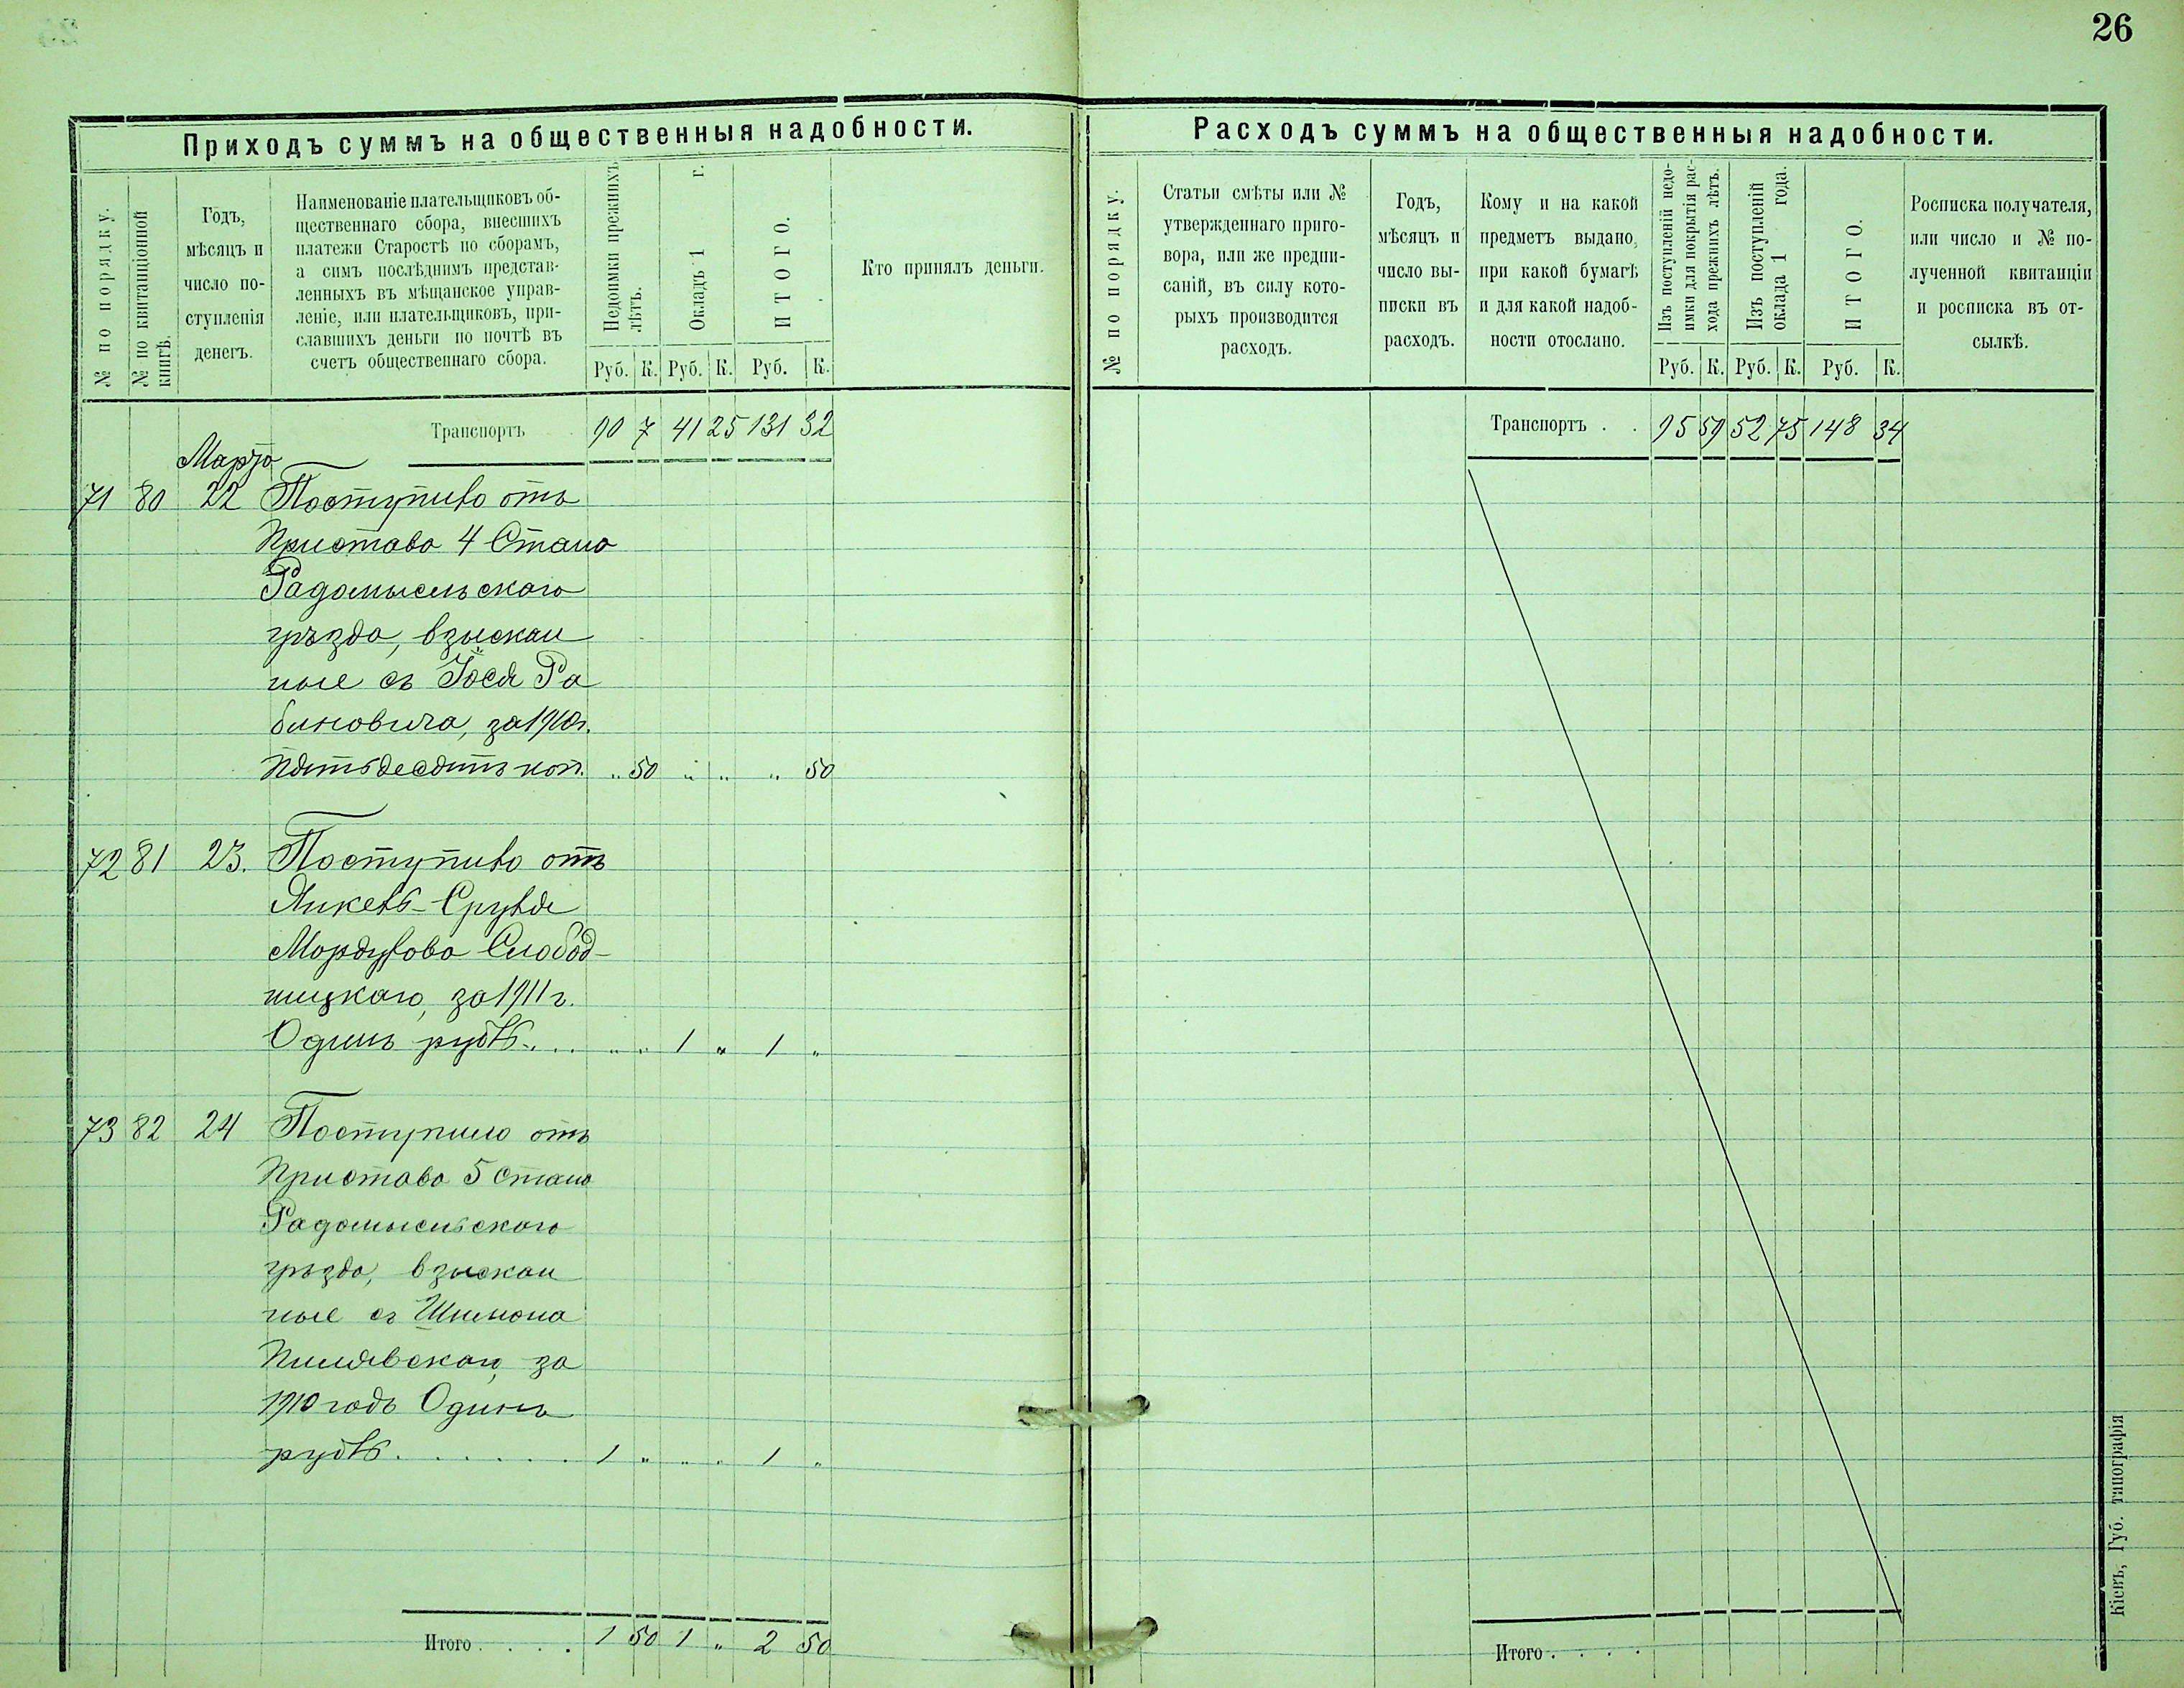 26
Приходъ суммъ на общественныя надобности.
№ по порядку.
№ по квитанціонной книгѣ.
Годъ,
мѣсяцъ и
число по-
ступленія
денегъ.
Наименованіе плательщиковъ об-
щественнаго сбора, внесшихъ
платежи Старостѣ по сборамъ,
а симъ послѣднимъ представ-
ленныхъ въ мѣщанское управ-
леніе, или плательщиковъ, при-
славшихъ деньги по почтѣ въ
счетъ общественнаго сбора.
Недоимки прежнихъ
лѣтъ.
Окладъ 1 г.
ИТОГО.
Руб. К. Руб. К. Руб. К.
Кто принялъ деньги.
Транспортъ 90 7 41 25 131 32
Марта
71 80 22 Поступило отъ
Пристава 4 Стана
Радомысльскаго
уѣзда, взыскан
ные съ Йося Ра
биновича, за 1910 г.
Пятьдесятъ коп. " 50 " " " 50
72 81 23. Поступило отъ
Янкель-Сруля
Мордухова Слобод-
ницкаго, за 1911 г.
Одинъ рубль... " " 1 " 1 "
73 82 24 Поступило отъ
Пристава 5 стана
Радомысльскаго
уѣзда, взыскан
ные съ Шимона
Пилявскаго, за
1910 годъ Одинъ
рубль...... 1 " " " 1 "
Итого.... 1 50 1 " 2 50
Расходъ суммъ на общественныя надобности.
№ по порядку.
Статьи смѣты или №
утвержденнаго приго-
вора, или же предпи-
саній, въ силу кото-
рыхъ производится
расходъ.
Годъ,
мѣсяцъ и
число вы-
писки въ
расходъ.
Кому и на какой
предметъ выдано,
при какой бумагѣ
и для какой надоб-
ности отослано.
Изъ поступленій недо-
имки для покрытія рас-
хода прежнихъ лѣтъ.
Изъ поступленій
оклада 1 года.
ИТОГО.
Руб. К. Руб. К. Руб. К.
Росписка получателя,
или число и № по-
лученной квитанціи
и росписка въ от-
сылкѣ.
Транспортъ . . 95 59 52 75 148 34
Итого....
Кіевъ, Губ. типографія